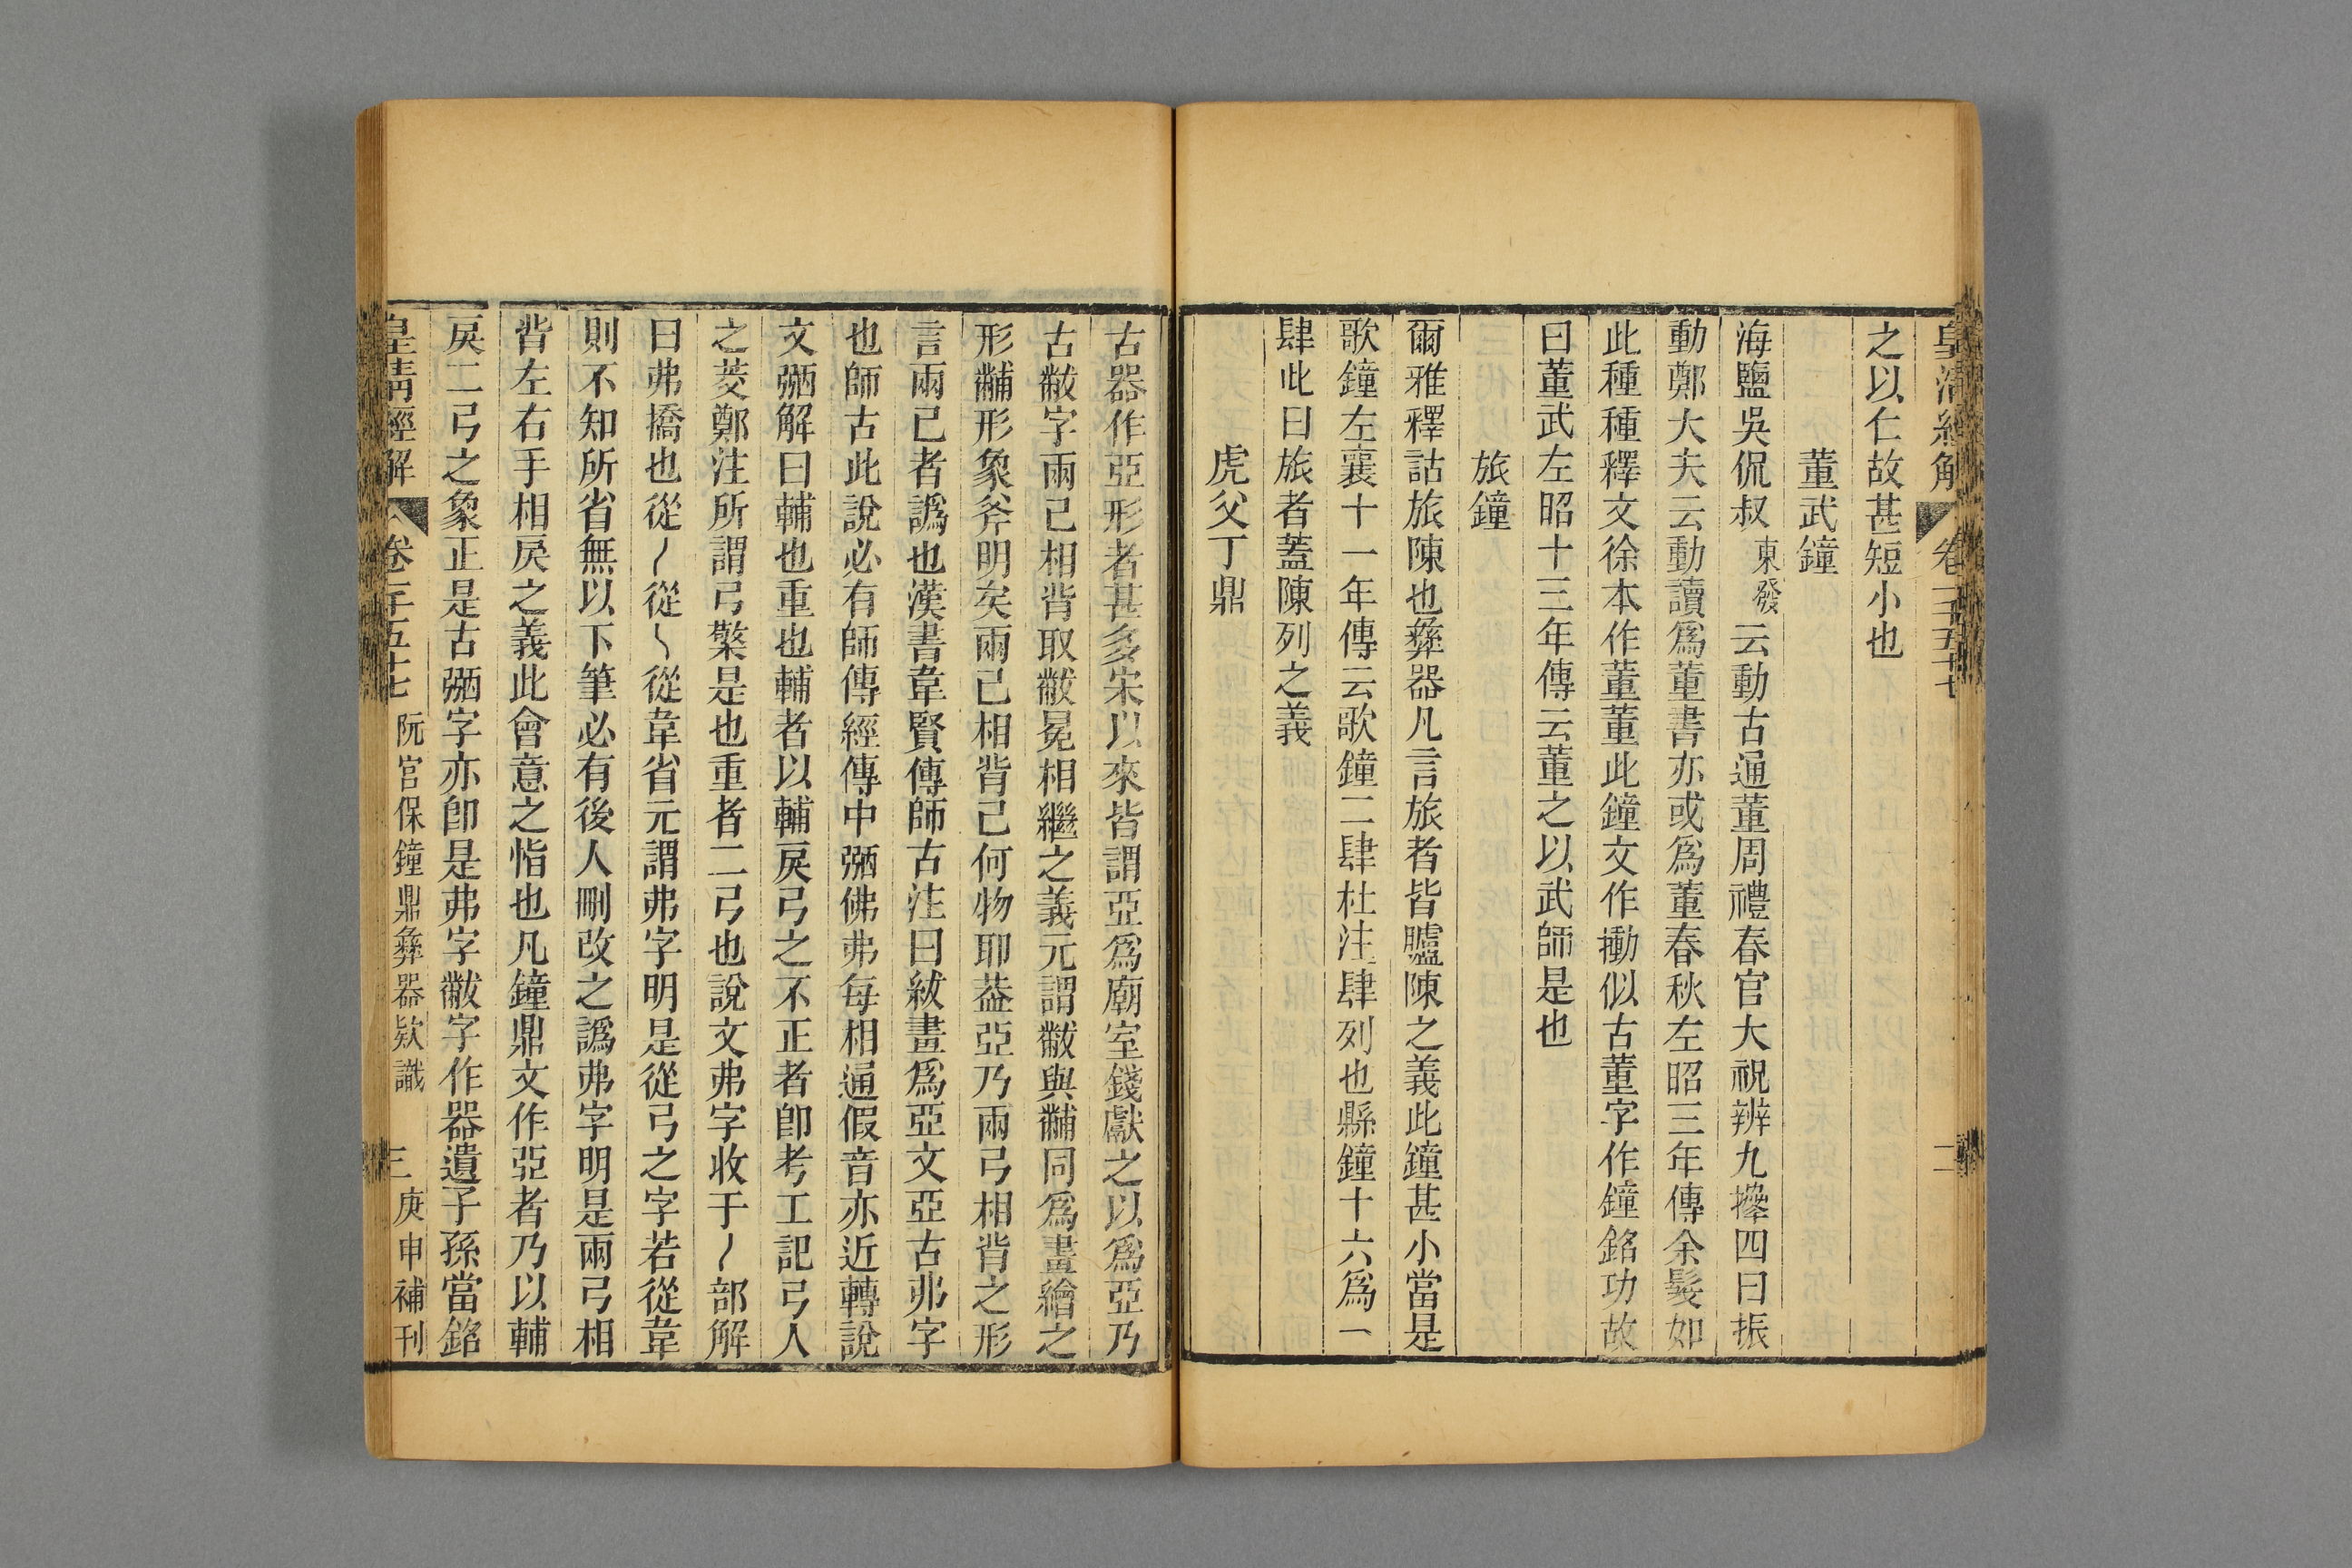 皇清經解 卷一千五十七 二
之以仁故甚短小也
董武鐘
海鹽吳侃叔東發云動古通董周禮春官大祝辨九𢷎四曰振
動鄭大夫云動讀爲董書亦或爲董春秋左昭三年傳余髮如
此種種釋文徐本作董董此鐘文作㨂似古董字作鐘銘功故
曰董武左昭十三年傳云董之以武師是也
旅鐘
爾雅釋詁旅陳也彝器凡言旅者皆臚陳之義此鐘甚小當是
歌鐘左襄十一年傳云歌鐘二肆杜注肆列也縣鐘十六爲一
肆此曰旅者蓋陳列之義
虎父丁鼎
古器作亞形者甚多宋以來皆謂亞爲廟室錢獻之以爲亞乃
古黻字兩己相背取黻冕相繼之義元謂黻與黼同爲畫繪之
形黼形象斧明矣兩己相背己何物耶葢亞乃兩弓相背之形
言兩己者譌也漢書韋賢傳師古注曰紱畫爲亞文亞古弗字
也師古此說必有師傳經傳中弼佛弗每相通假音亦近轉說
文弼解曰輔也重也輔者以輔戾弓之不正者卽考工記弓人
之茭鄭注所謂弓檠是也重者二弓也說文弗字收于丿部解
曰弗撟也從丿從乀從韋省元謂弗字明是從弓之字若從韋
則不知所省無以下筆必有後人刪改之譌弗字明是兩弓相
背左右手相戾之義此會意之恉也凡鐘鼎文作亞者乃以輔
戾二弓之象正是古弼字亦卽是弗字黻字作器遺子孫當銘
皇清經解 卷一千五十七 阮宮保鐘鼎彝器欵識 三 庚申補刊